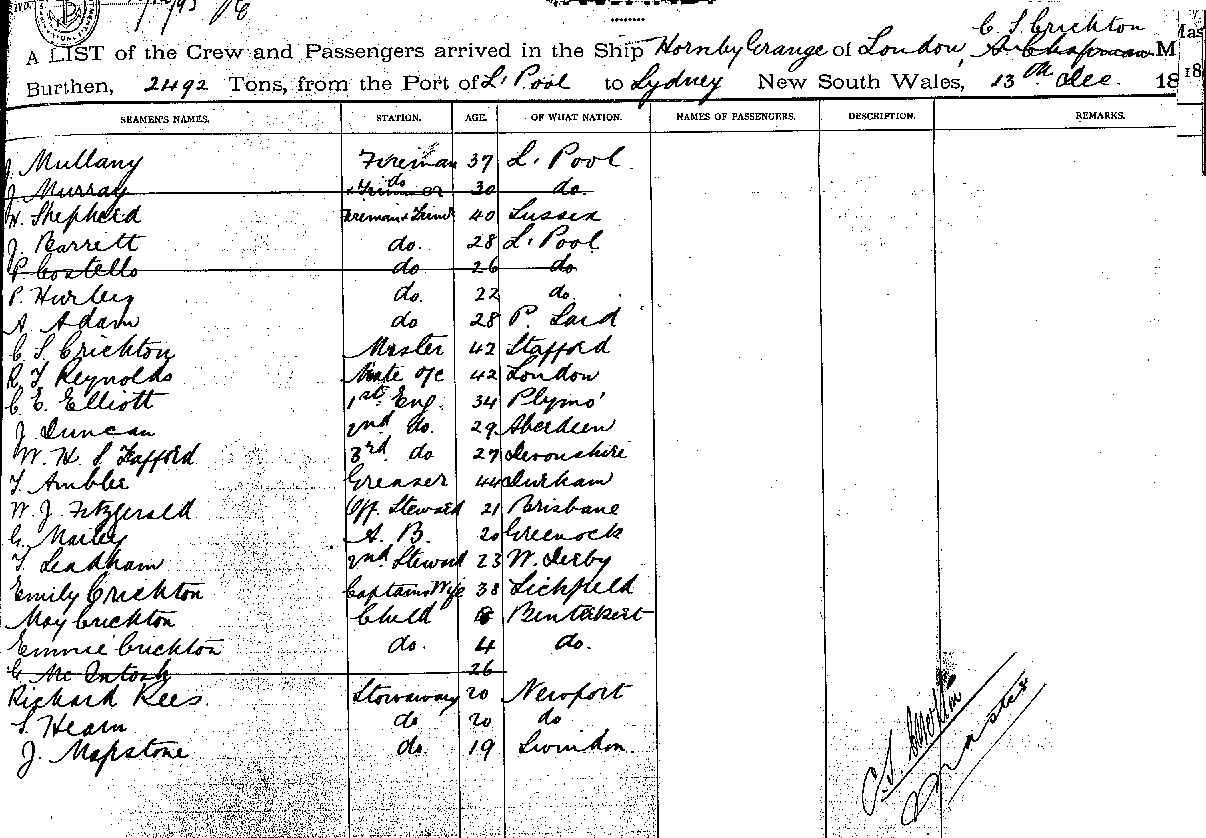 C. S. Crichton
A LIST of the Crew and Passengers arrived in the Ship Hornby Grange of London, A. Chapman M
Burthen, 2492 Tons, from the Port of L'Pool to Sydney New South Wales, 13th Dec. 18
SEAMEN'S NAMES. STATION. AGE. OF WHAT NATION. NAMES OF PASSENGERS. DESCRIPTION. REMARKS.
J. Mullany Fireman 37 L'Pool
J. Murray do & Trimmer 30 do.
H. Shepherd Fireman & Trimr 40 Sussex
J. Barrett do. 28 L'Pool
P. Costello do 26 do
P. Hurley do. 22 do.
A. Adam do 28 P. Laid
C. S. Crichton Master 42 Stafford
R. T. Reynolds Mate o/c 42 London
C. E. Elliott 1st Eng. 34 Plymo'
J. Duncan 2nd do. 29 Aberdeen
W. H. S. Trafford 3rd do 27 Devonshire
T. Ambler Greaser 44 Durham
W. J. Fitzgerald Off. Steward 21 Brisbane
G. Marley A. B. 20 Greenock
T. Leadham 2nd Steward 23 W. Derby
Emily Crichton Captains Wife 38 Lichfield
May Crichton Child Birkenhead
Emmie Crichton do. 4 do.
G. McIntosh 26
Richard Rees Stowaway 20 Newport
S. Hearn do 20 do
J. Mapstone do. 19 Swindon.
C. S. Crichton
Master